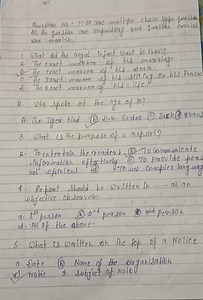 Question no - 1-20 are multiple choice type question
All the question are compulsory each question carries
one marks.
1. What did the royal infant want to know?
A. The exact manner of his marriage
B. The exact manner of his death
C. The exact manner of his sitting on his throne
D. The exact manner of his life
2. Who spoke at the age of 10?
A. The tiger king
3. What is the purpose of a report?
A. To entertain the readers B. To communicate
information effectively C. To provide personal
opinions d) To use complex language
4. Report should be written in as an
objective observer.
a. 1st person b. 2nd person person
d. All of the above
5. What is written on the top of a Notice
a. Date b. Name of the organisation
c. Notice d. Subject of Notice